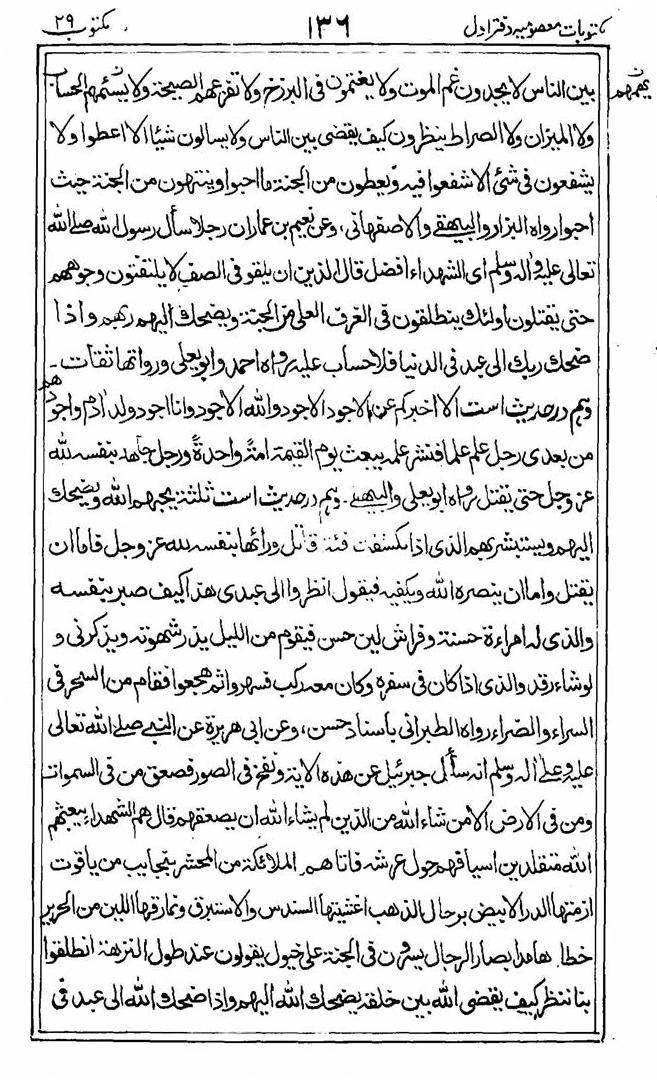 مکتوبات معصومیه دفتر اول ۱۳۶ مکتوب ۲۹
یهمهم
بین الناس لا یجدون غم الموت ولا یغتمون فی البرزخ ولا تفزعهم الصیحة ولا الحساب
ولا المیزان ولا الصراط ینظرون کیف یقضی بین الناس ولا یسالون شیئا الا اعطوا ولا
یشفعون فی شئ الا شفعوا فیه ویعطون من الجنة ما احبوا وینتهون من الجنة حیث
احبوا رواه البزار والبیهقے والاصفهانی، وعن نعیم بن عمار ان رجلا سأل رسول الله صلے الله
تعالی علیه واله وسلم ای الشهداء افضل قال الذین ان یلقو فی الصف لا یلتفتون وجوههم
حتی یقتلون اولئک یتطلقون فی الغرف العلی من الجنة ویضحک الیهم ربهم واذا
ضحک ربک الی عبد فی الدنیا فلا حساب علیه رواه احمد وابو یعلی ورواتها ثقات۔
وهم در حدیث است الا اخبرکم عن الاجود الاجود والله الاجود وانا اجود ولد ادم واجود
هم
من بعدی رجل علم علما فنشر علمه یبعث یوم القیمة امة واحدة ورجل جاهد بنفسه لله
عز وجل حتی یقتل رواه ابو یعلی والبیهقے۔ وهم در حدیث است ثلثة یحبهم الله ویضحک
الیهم ویستبشر بهم الذی اذا انکشفت فئة قاتل ورائها بنفسه لله عز وجل فاما ان
یقتل واما ان ینصره الله ویکفیه فیقول انظروا الی عبدی هذا کیف صبر بنفسه
والذی له امراءة حسنة وفراش لین حسن فیقوم من اللیل یذر شهوته ویذکرنی و
لو شاء رقد والذی اذا کان فی سفر وکان معه رکب فسهروا ثم هجعوا فقام من السحر فی
السراء والضراء رواه الطبرانی باسناد حسن، وعن ابی هریرة عن النبے صلے الله تعالی
علیه وعلے اله وسلم انه سأل جبرئیل عن هذه الایة ونفخ فی الصور فصعق من فی السموات
ومن فی الارض الا من شاء الله من الذین لم یشاء الله ان یصعقهم قال هم الشهداء یبعثهم
الله متقلدین اسیافهم حول عرشه فاتاهم الملائکة من المحشر بنجایب من یاقوت
ازمتها الدر الابیض برحال الذهب اغشیتها السندس والاستبرق ونمارقها اللین من الحریر
خطاها مد ابصار الرجال یسیرون فی الجنة علی خیول یقولون عند طول النزهة انطلقوا
بنا ننظر کیف یقضی الله بین خلقه یضحک الله الیهم واذا ضحک الله الی عبد فی